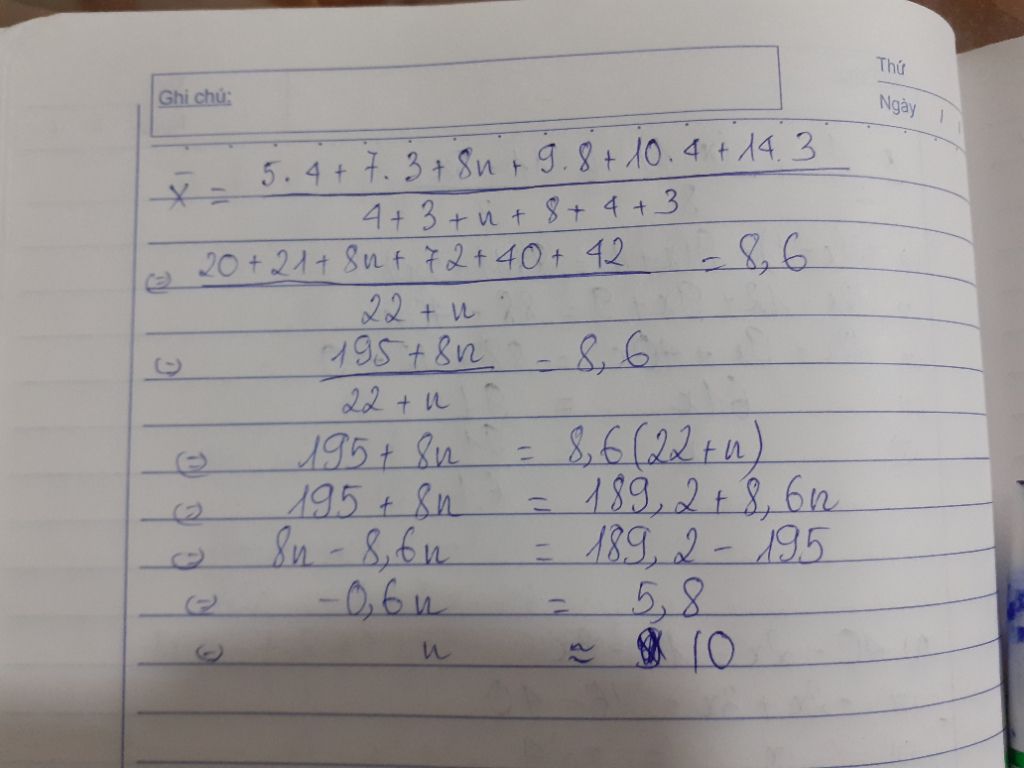 Ghi chú:
Thứ
Ngày / /
x̄ = (5.4 + 7.3 + 8n + 9.8 + 10.4 + 14.3) / (4 + 3 + n + 8 + 4 + 3)
(=) (20 + 21 + 8n + 72 + 40 + 42) / (22 + n) = 8,6
(=) (195 + 8n) / (22 + n) = 8,6
(=) 195 + 8n = 8,6(22 + n)
(=) 195 + 8n = 189,2 + 8,6n
(=) 8n - 8,6n = 189,2 - 195
(=) -0,6n = 5,8
(=) n ≈ 10